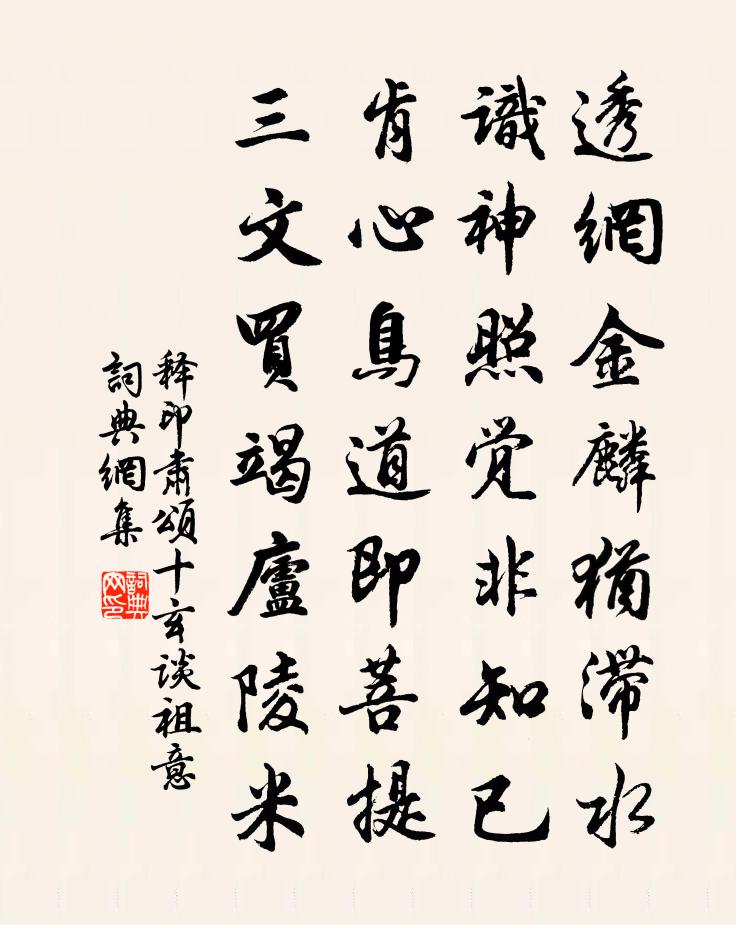 透網金麟猶滯水
識神照覚非知已
肯心鳥道即菩提
三文買竭廬陵米
释印肅頌十玄談祖意
詞典網集
詞典网印